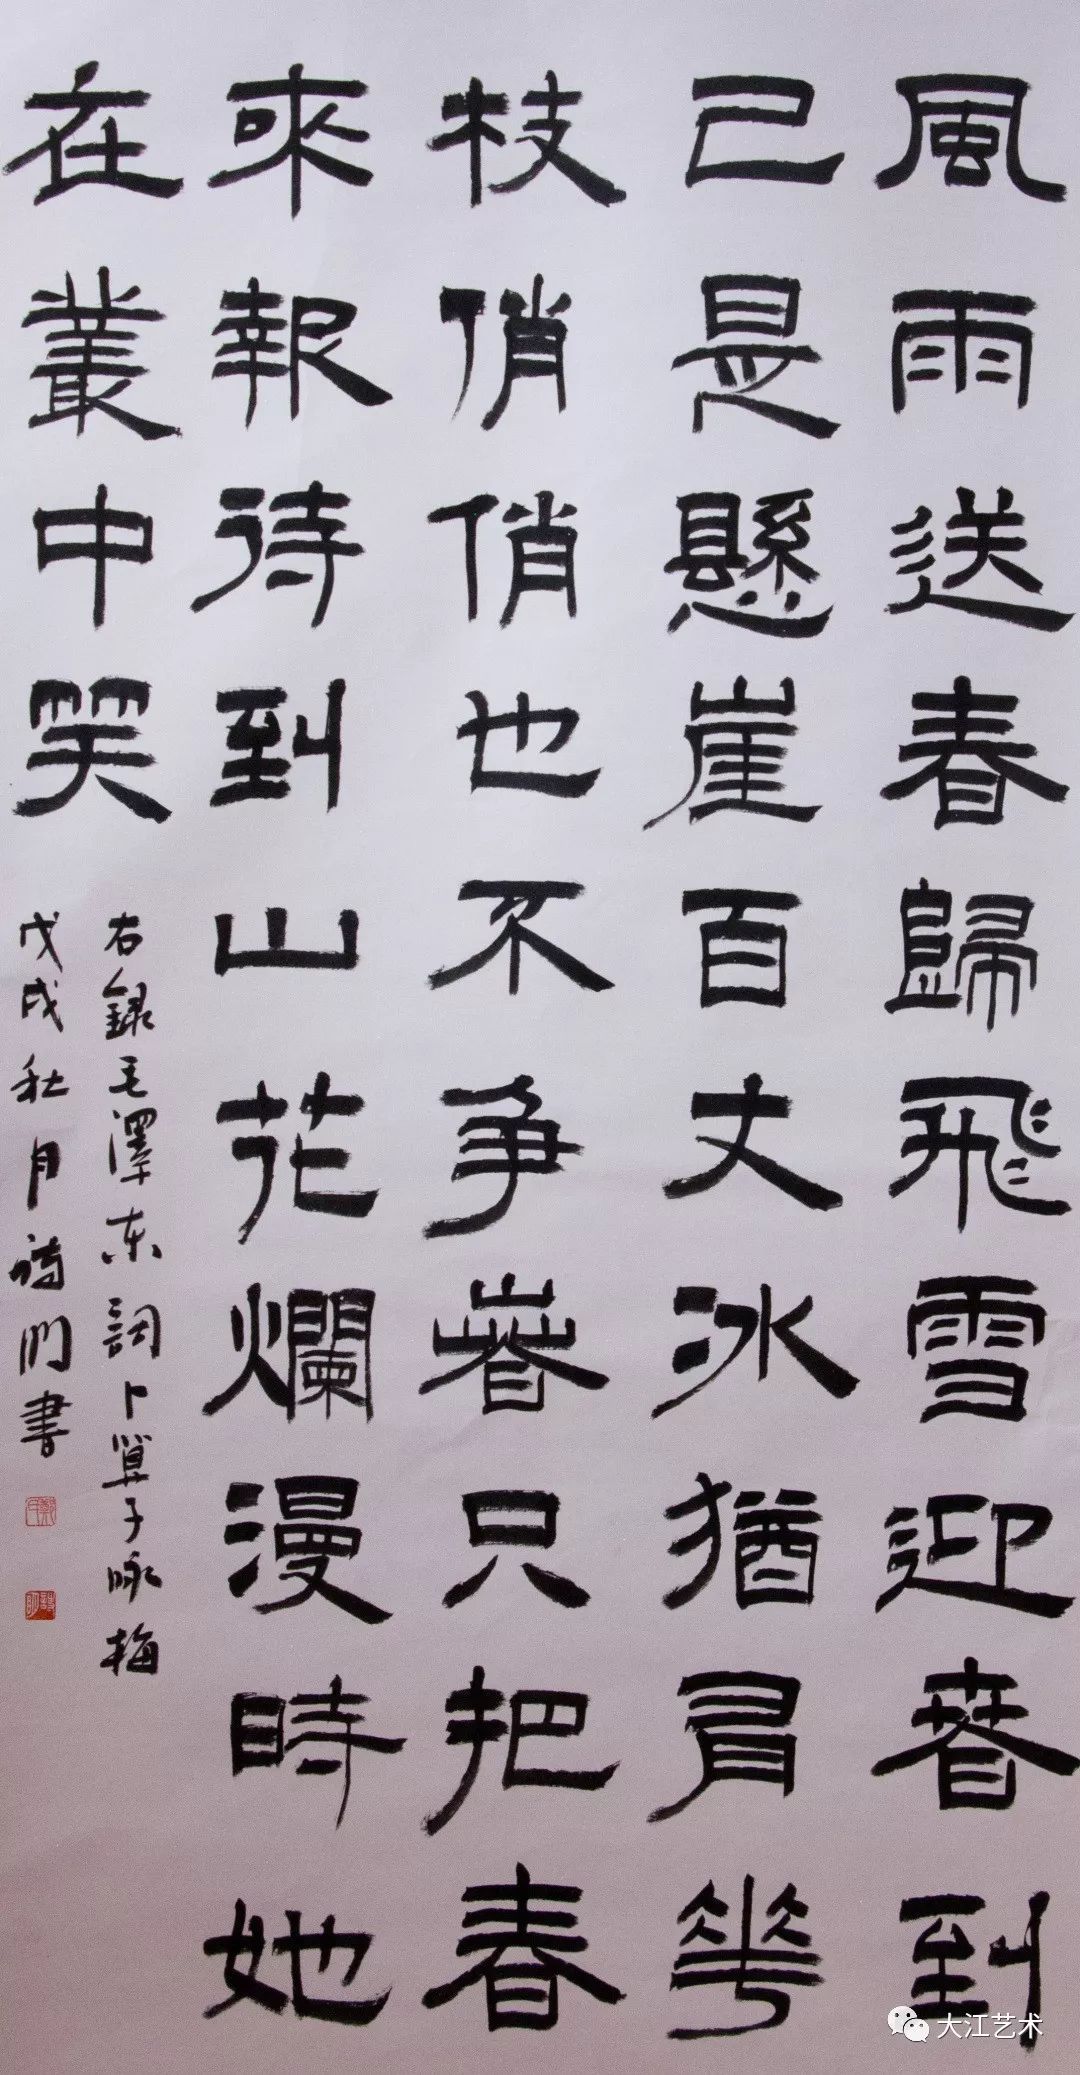 風雨送春歸飛雪迎春到
已是懸崖百丈冰猶有華
枝俏俏也不争春只把春
來報待到山花爛漫時她
在叢中笑
右録毛澤东詞卜算子咏梅
戊戌秋月詩明書
大江艺术